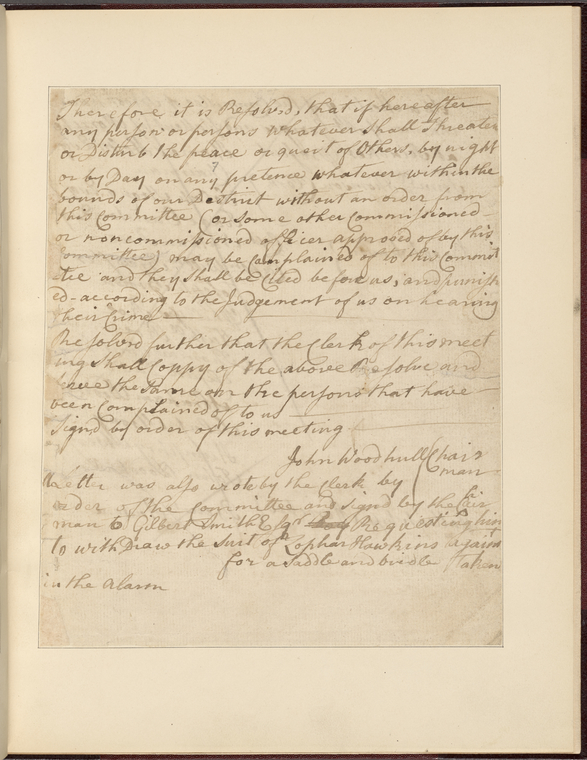 Therefore it is Resolved, that if hereafter
any person or persons whatever shall Threaten
or Disturb the peace or queit of Others, by night
or by Day on any pretence whatever within the
bounds of our Destrict without an order from
this Committee (or some other Commissioned
or noncommissioned officer approved of by this
Committee) may be Complained of to this Commit
tee and they shall be Cited before us, and punish
ed according to the Judgement of us on hearing
their Crime
Resolved further that the Clerk of this meet
ing shall Coppy of the above Resolve and
the same on the persons that have
been Complained of to us
Signd by order of this meeting
John Woodhull Chair
man
letter was also wrote by the Clerk by
order of the Committee and signd by the Chair
man to Gilbert Smith Esqr Requesting him
To withDraw the suit of Zophar Hawkins against
for a saddle and bridle Taken
in the Alarm